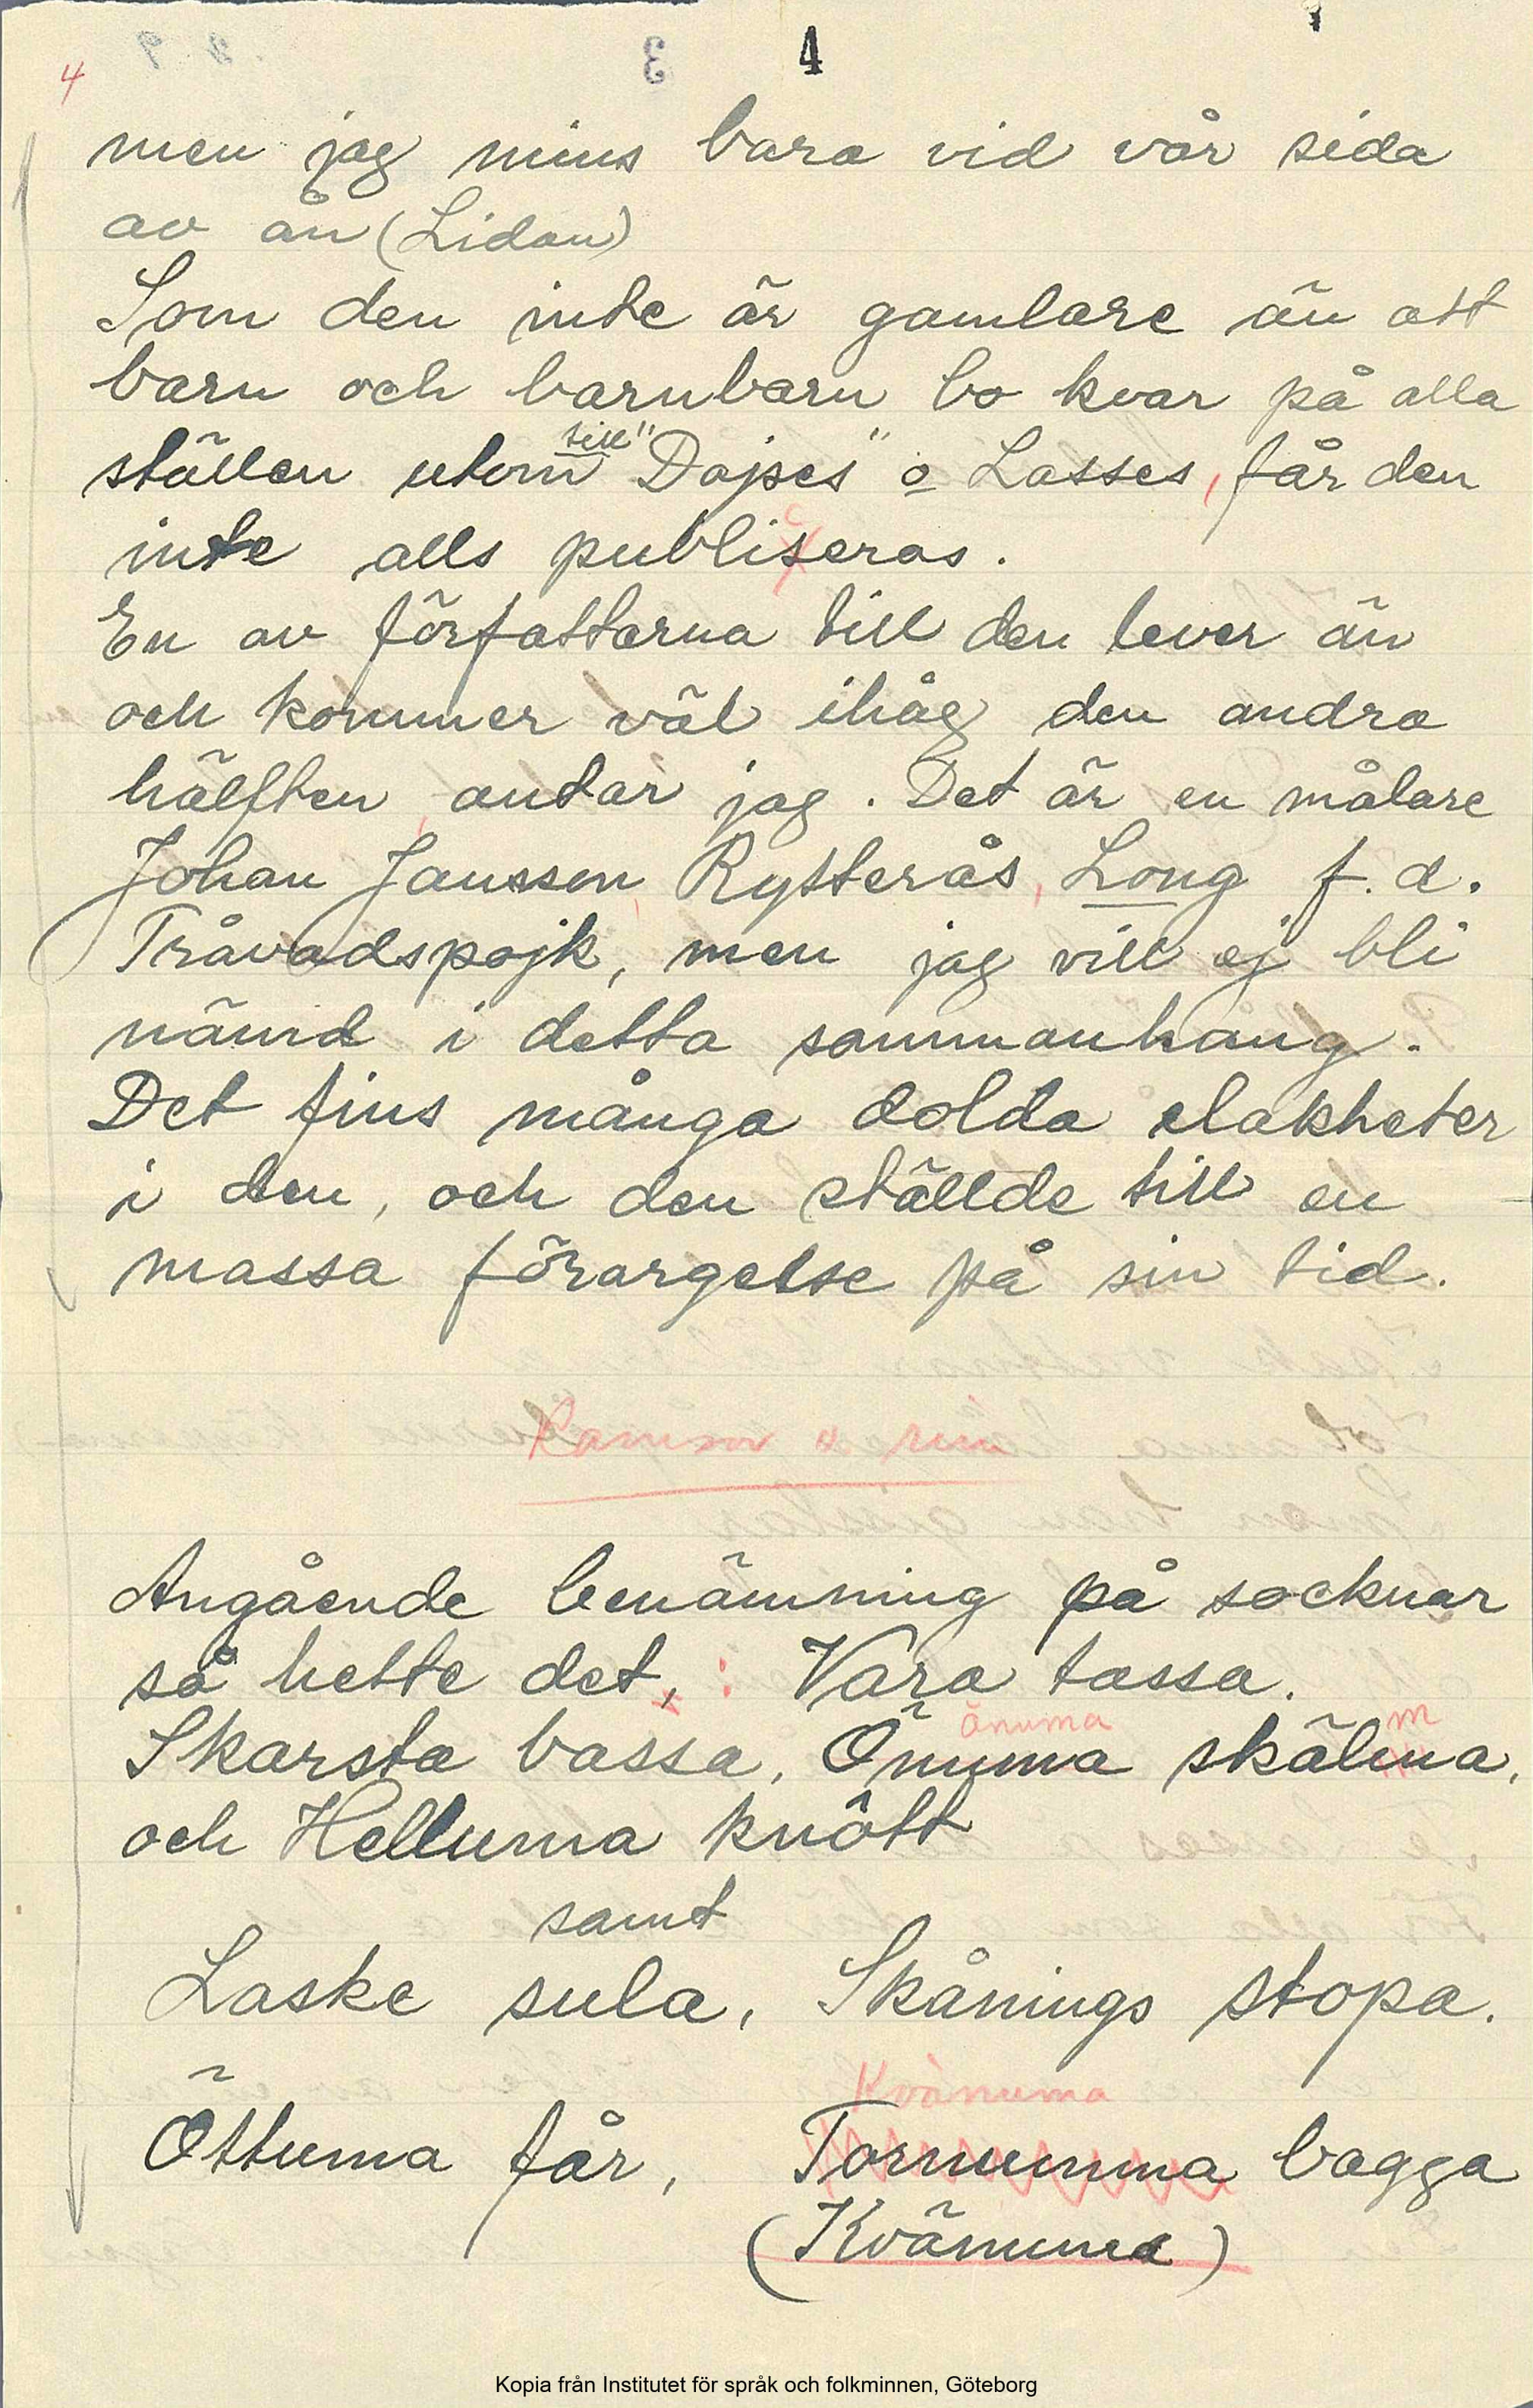 4
4
men jag mins bara vid vår sida
av ån (Lidan)
Som den inte är gamlare än att
barn och barnbarn bo kvar på alla
till
ställen utom "Dojses" o Lasses, får den
c
inte alls publiseras.
En av författarna till den lever än
och kommer väl ihåg den andra
hälften, antar jag. Det är en målare
Johan Jansson, Rytterås, Long f. d.
Tråvadspojk, men jag vill ej bli
nämd i detta sammanhang.
Det fins många dolda elakheter
i den, och den ställde till en
massa förargelse på sin tid.
Ramsor o rim
Angående benämning på socknar
så hette det, : Vara tassa.
änuma m
Skarsta bassa, Önuma skälma,
och Helluma knôtt
samt
Laske sula, Skånings stopa.
Kvänuma
Öttuma får, Tornumma bagga
(Kvänuma)
Kopia från Institutet för språk och folkminnen, Göteborg